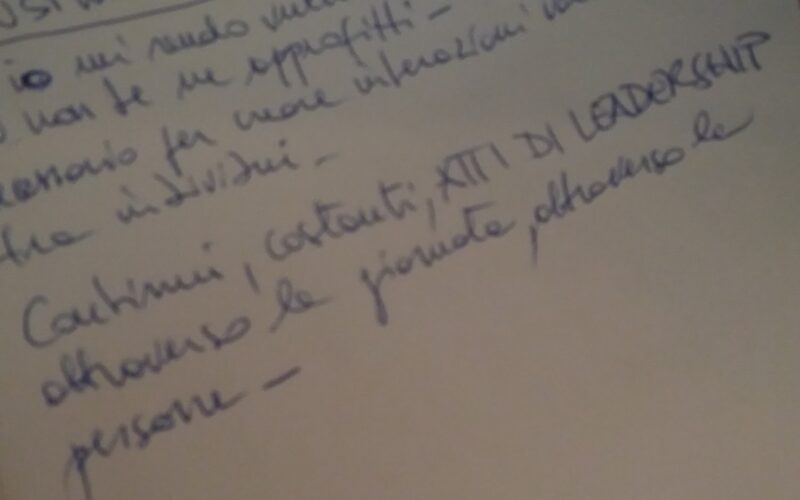 io mi rendo
non te ne approfitti -
per creare interazioni
tra individui -
Continui, costanti, ATTI DI LEADERSHIP
attraverso la giornata, attraverso le
persone -